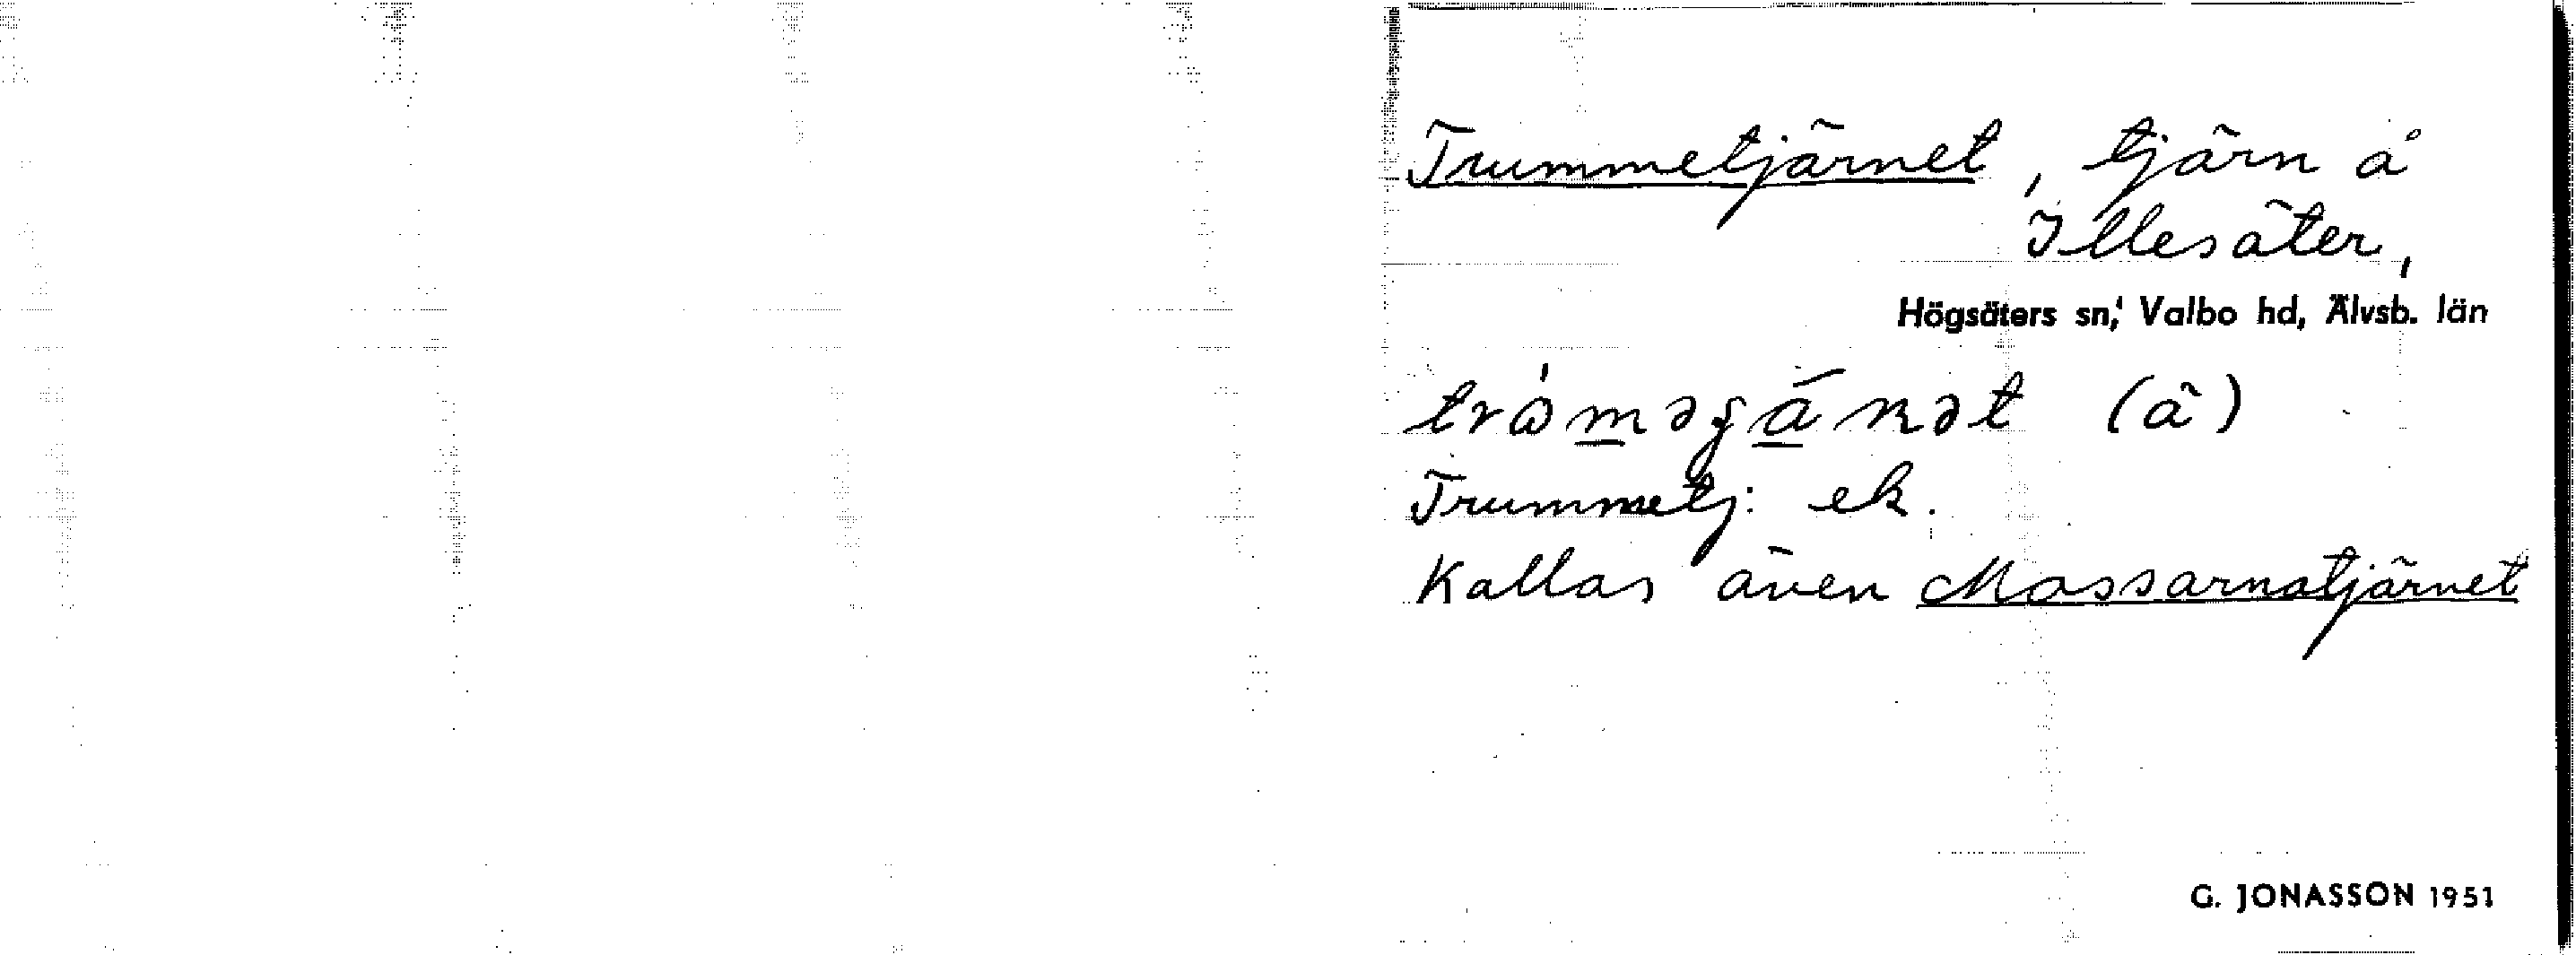 Trummetjärnet, tjärn å
Illesäter,
Högsäters sn, Valbo hd, Älvsb. län
Trummetj: ek.
Kallas även Mossarnatjärnet
G. JONASSON 1951